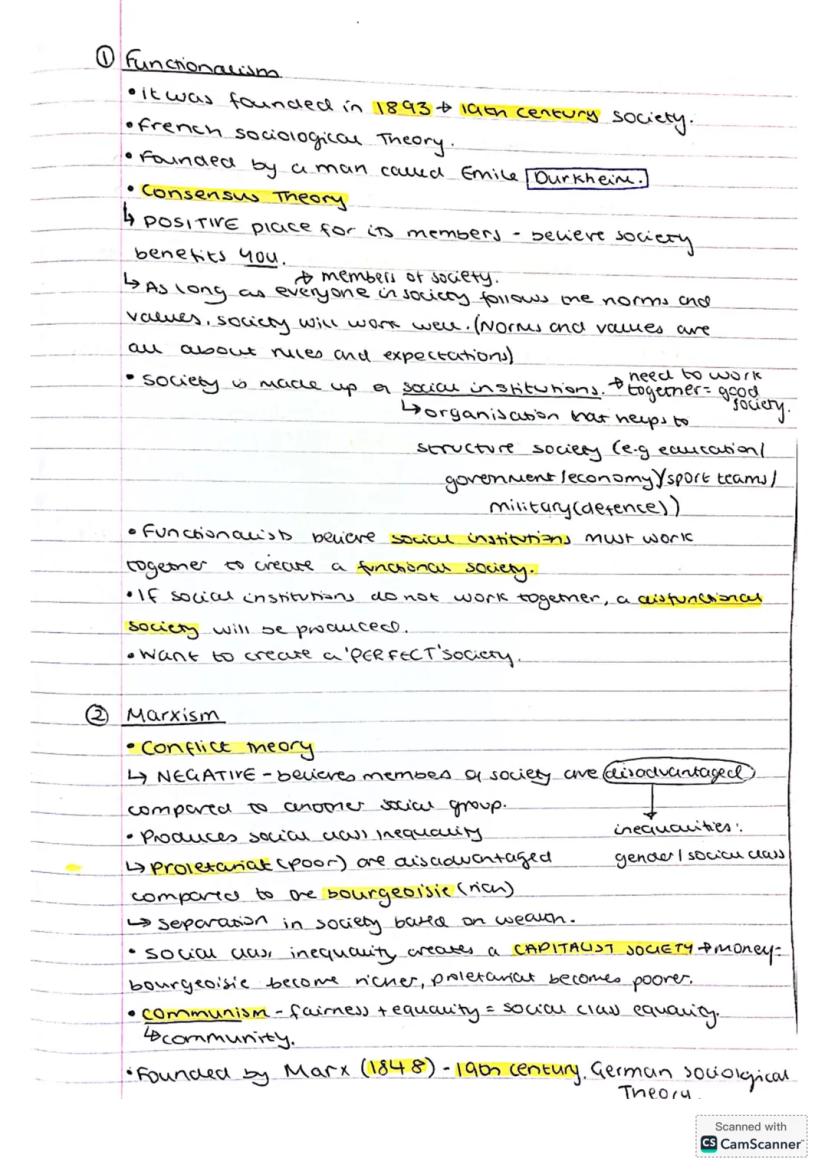 ① Functionalism
• it was founded in 1893 → 19th century society.
• French sociological Theory.
• Founded by a man called Emile Durkheim.
• Consensus Theory
↳ POSITIVE place for its members - believe society
benefits you.
→ members of society.
↳ As long as everyone in society follows the norms and
values, society will work well. (Norms and values are
all about rules and expectations)
• Society is made up of social institutions. → need to work
together = good
society.
↳ organisation that helps to
structure society (e.g education/
government/economy/sport teams/
military(defence))
• Functionalists believe social institutions must work
together to create a functional society.
• If social institutions do not work together, a disfunctional
society will be produced.
• Want to create a 'PERFECT' society.
② Marxism
• Conflict theory
↳ NEGATIVE - believes members of society are disadvantaged
compared to another social group.
• Produces social class inequality
inequalities:
↳ Proletariat (poor) are disadvantaged
gender/social class
compared to the bourgeoisie (rich)
↳ separation in society based on wealth.
• social class inequality creates a CAPITALIST SOCIETY → money=
bourgeoisie become richer, proletariat becomes poorer.
• communism - fairness + equality = social class equality.
↳ community.
• Founded by Marx (1848) - 19th century. German sociological
Theory.
Scanned with
CS CamScanner